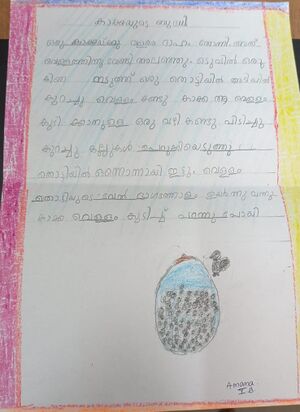 കാക്കയുടെ ബുദ്ധി
ഒരു കാക്കയ്ക്കു വല്ലാത ദാഹം തോന്നി അത്
വെള്ളത്തിനു വേണ്ടി അലഞ്ഞു. ഒടുവിൽ ഒരു
അടുത്ത് ഒരു തൊട്ടിയിൽ അടിയിൽ
കുറച്ചു വെള്ളം കണ്ടു കാക്ക ആ വെള്ളം
കുടിക്കാനുള്ള ഒരു വഴി കണ്ടു പിടിച്ചു
കുറച്ചു കല്ലുകൾ പെറുക്കിയെടുത്തു
തൊട്ടിയിൽ ഒന്നൊന്നായി ഇട്ടു. വെള്ളം
തൊട്ടിയുടെ ഭാഗത്തോളം ഉയർന്നു വന്നു
കാക്ക വെള്ളം കുടിച്ച് പറന്നു പോയി
Amana
I B